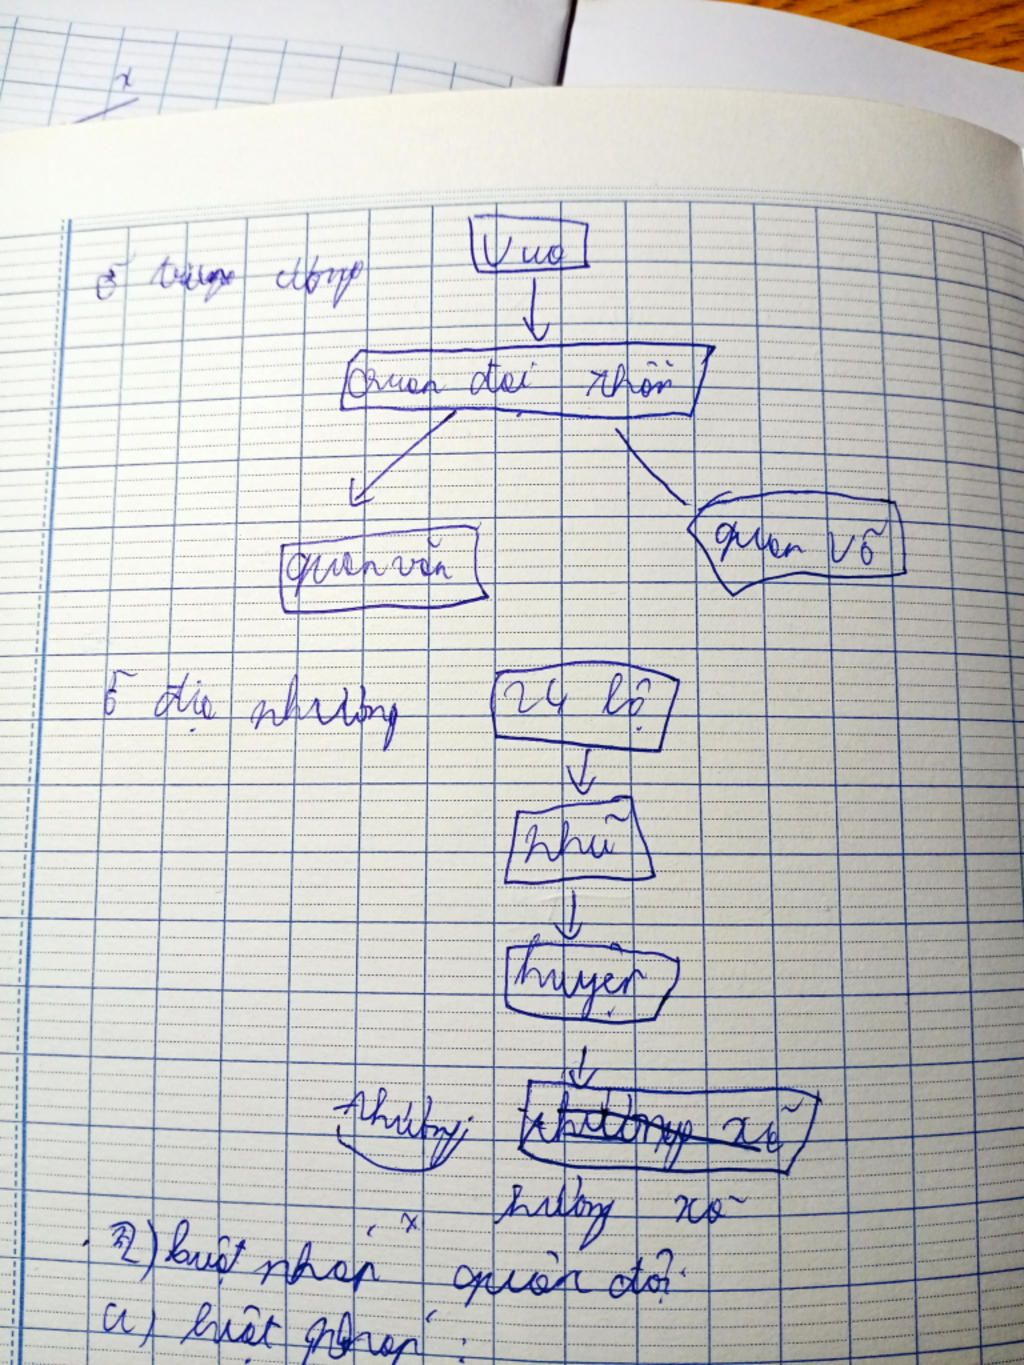 x
Vua
ở trung ương
Quan đại thần
quan văn
quan võ
ở địa phương
24 lộ
phủ
huyện
hương xã
2) luật pháp quân đội
a) luật pháp :